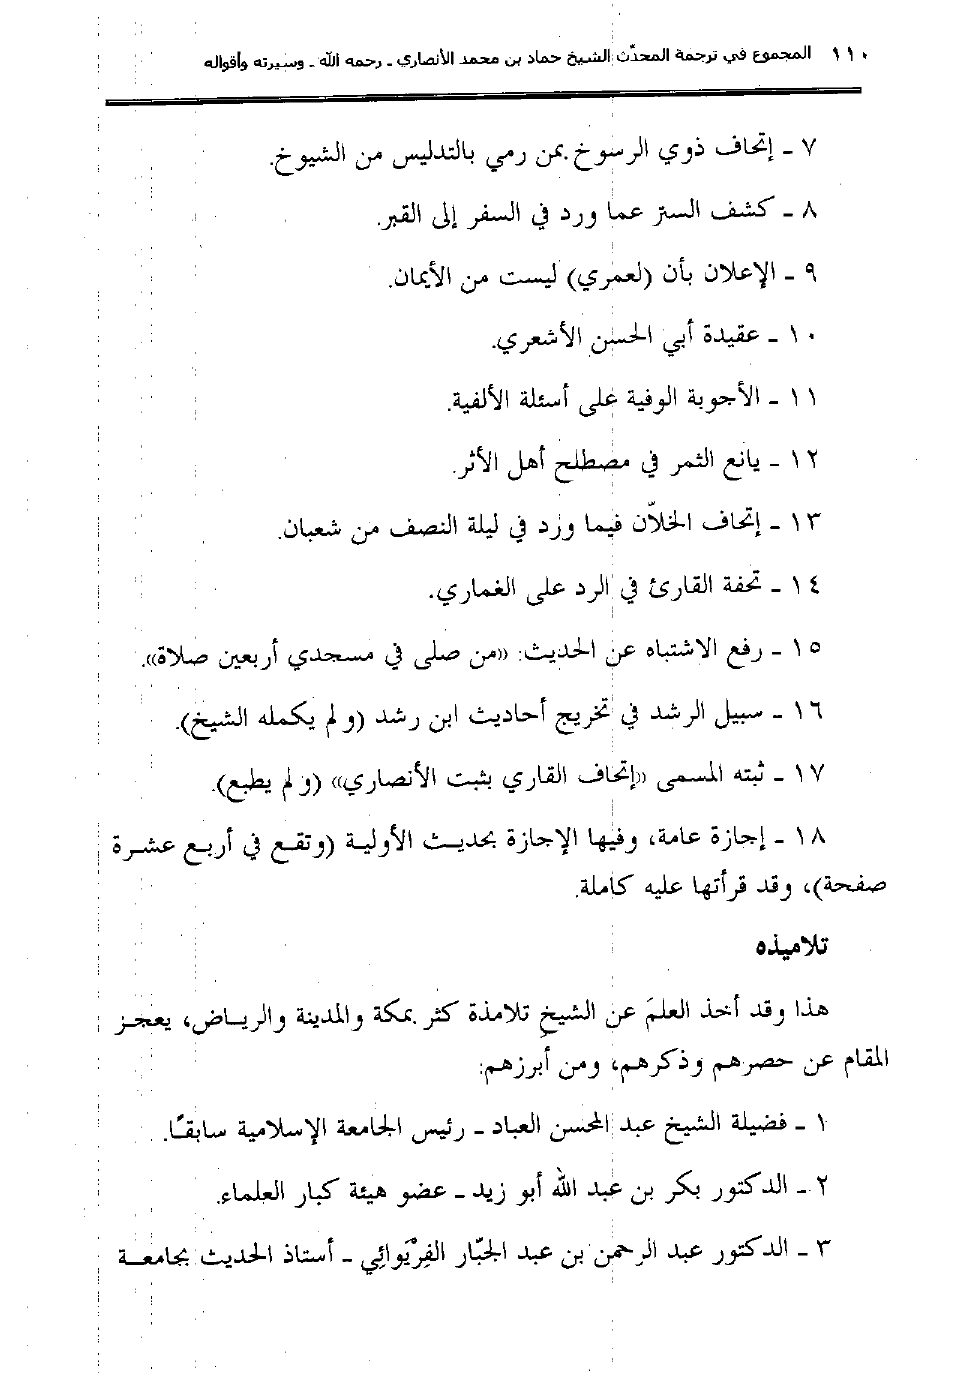 ١١٠ المجموع في ترجمة المحدّث الشيخ حماد بن محمد الأنصاري ـ رحمه الله ـ وسيرته وأقواله
٧ ـ إتحاف ذوي الرسوخ بمن رمي بالتدليس من الشيوخ.
٨ ـ كشف الستر عما ورد في السفر إلى القبر.
٩ ـ الإعلان بأن (لعمري) ليست من الأيمان.
١٠ ـ عقيدة أبي الحسن الأشعري.
١١ ـ الأجوبة الوفية على أسئلة الألفية.
١٢ ـ يانع الثمر في مصطلح أهل الأثر.
١٣ ـ إتحاف الخلاّن فيما ورد في ليلة النصف من شعبان.
١٤ ـ تحفة القارئ في الرد على الغماري.
١٥ ـ رفع الاشتباه عن الحديث: «من صلى في مسجدي أربعين صلاة».
١٦ ـ سبيل الرشد في تخريج أحاديث ابن رشد (ولم يكمله الشيخ).
١٧ ـ ثبته المسمى «إتحاف القاري بثبت الأنصاري» (ولم يطبع).
١٨ ـ إجازة عامة، وفيها الإجازة بحديث الأولية (وتقع في أربع عشرة
صفحة)، وقد قرأتها عليه كاملة.
تلاميذه
هذا وقد أخذ العلمَ عن الشيخِ تلامذة كثر بمكة والمدينة والرياض، يعجز
المقام عن حصرهم وذكرهم، ومن أبرزهم:
١ ـ فضيلة الشيخ عبد المحسن العباد ـ رئيس الجامعة الإسلامية سابقًا.
٢ ـ الدكتور بكر بن عبد الله أبو زيد ـ عضو هيئة كبار العلماء.
٣ ـ الدكتور عبد الرحمن بن عبد الجبّار الفِرْيَوائِي ـ أستاذ الحديث بجامعة